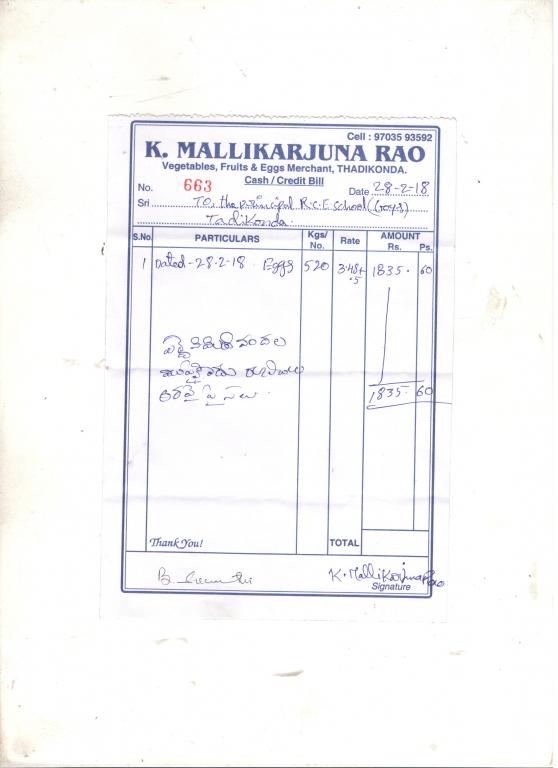 Cell : 97035 93592
K. MALLIKARJUNA RAO
Vegetables, Fruits & Eggs Merchant, THADIKONDA.
Cash / Credit Bill
No. 663 Date 28-2-18
Sri To, the principal R.C.E school (Boys)
Tadikonda.
S.No. PARTICULARS Kgs/No. Rate AMOUNT Rs. Ps.
1 Dated-28-2-18 Eggs 520 3.48+.5 1835. 60
రూపాయలు
అరవై పైసలు.
1835. 60
Thank You! TOTAL
B.
K. Mallikarjuna Rao
Signature